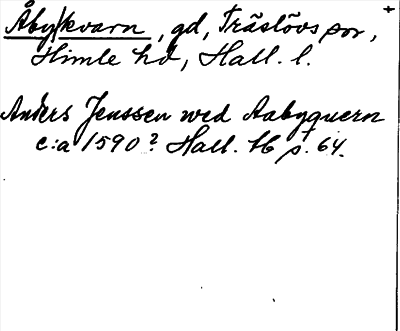 Åby/kvarn, gd, Träslövs sor,
Himle hd, Hall. l.
Anders Jenssen wed Aabyquern
c:a 1590? Hall. 16 s. 64.